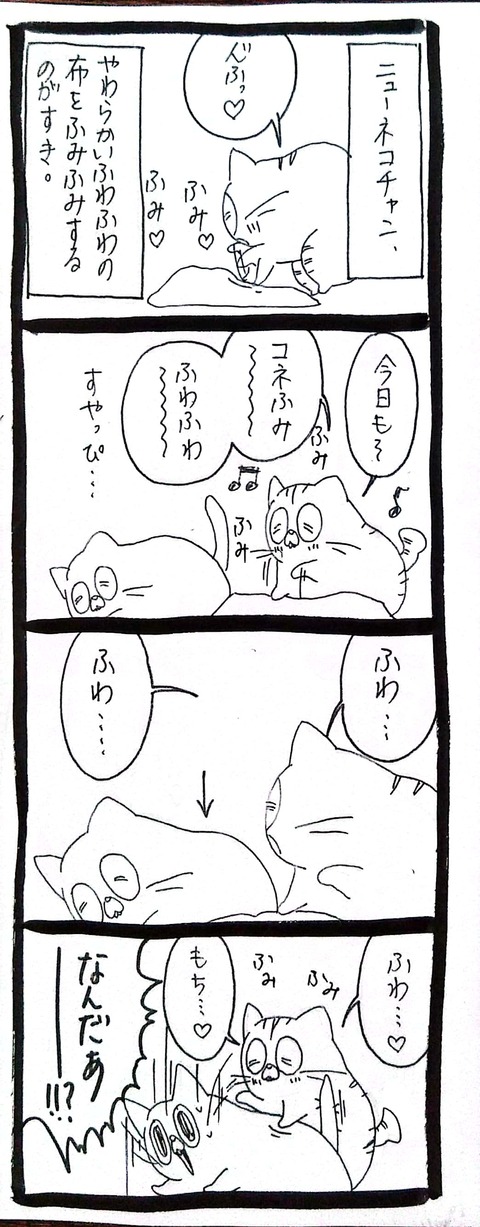 ニューネコチャン、
んふっ♡
ふみ♡
ふみ♡
やわらかいふわふわの
布をふみふみする
のがすき。
今日も〜
♪
ふみ
コネふみ
〜〜〜
ふわふわ
〜〜〜
♫
ふみ
すやっぴ…
ふわ…
ふわ……
↓
ふわ…♡
ふみ
ふみ
もち…♡
なんだぁ
ーー!!?